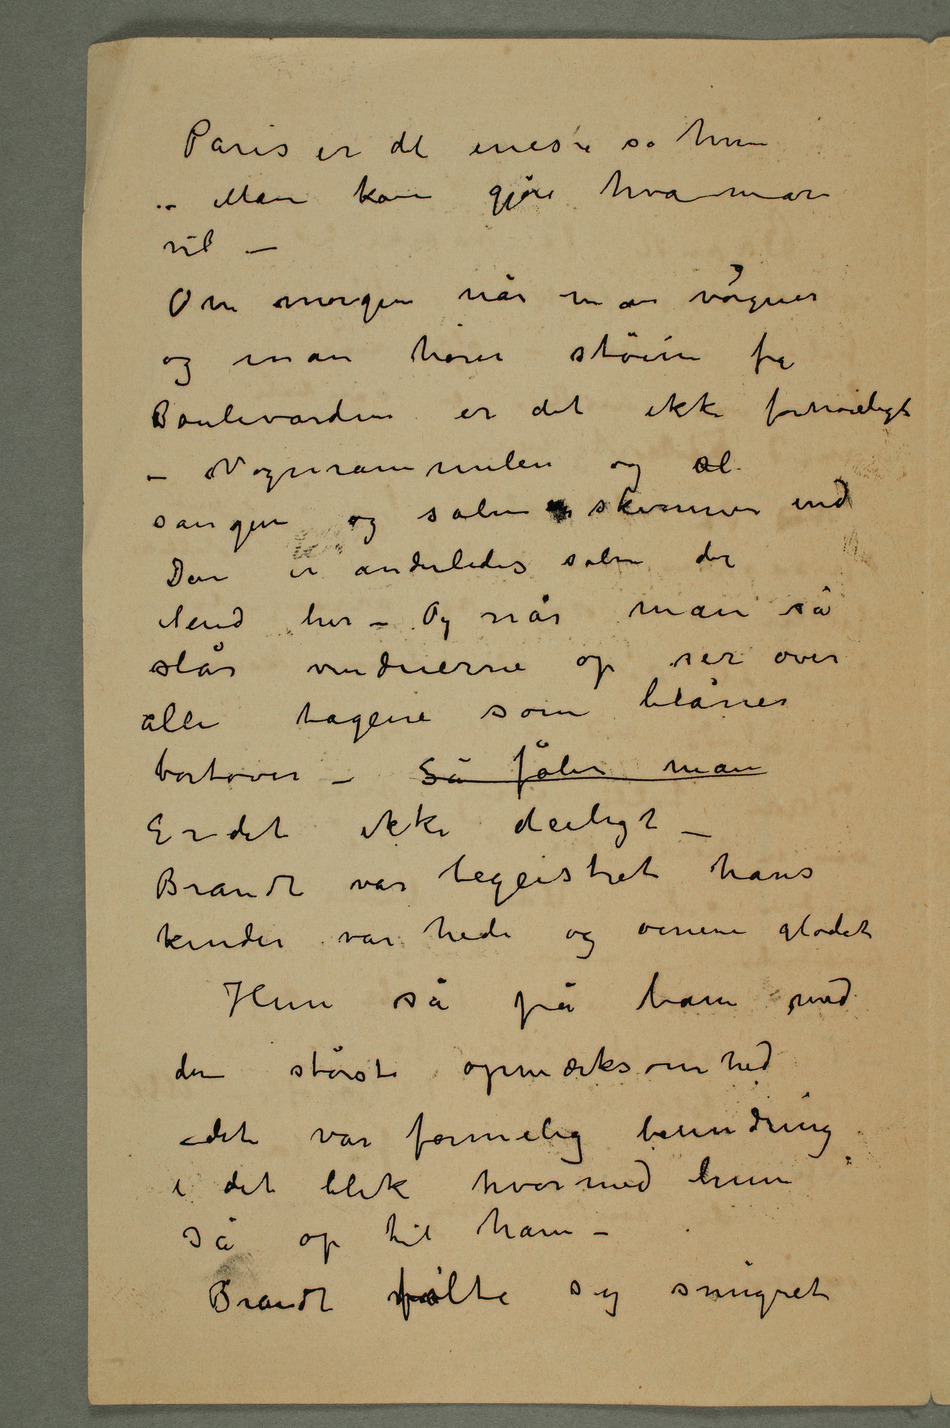 Paris er det eneste sa hun
– Man kan gjøre hva man
vil –
Om morgen når man vågner
og man hører støien fra
Boulevarden er det ikke fornøieligt
– Vognrammelen og al
sangen og solen skinner ind
Den er anderledes solen der
neند her – Og når man så
slår vinduerne op ser over
alle tagene som blåner
bortover – Så føler man
Er det ikke deiligt –
Brandt var begeistret hans
kinder var hede og øinene glødet
Hun så på ham med
den største opmærksomhed
– det var formelig beundring
i det blik hvormed hun
så op til ham –
Brandt følte sig smigret